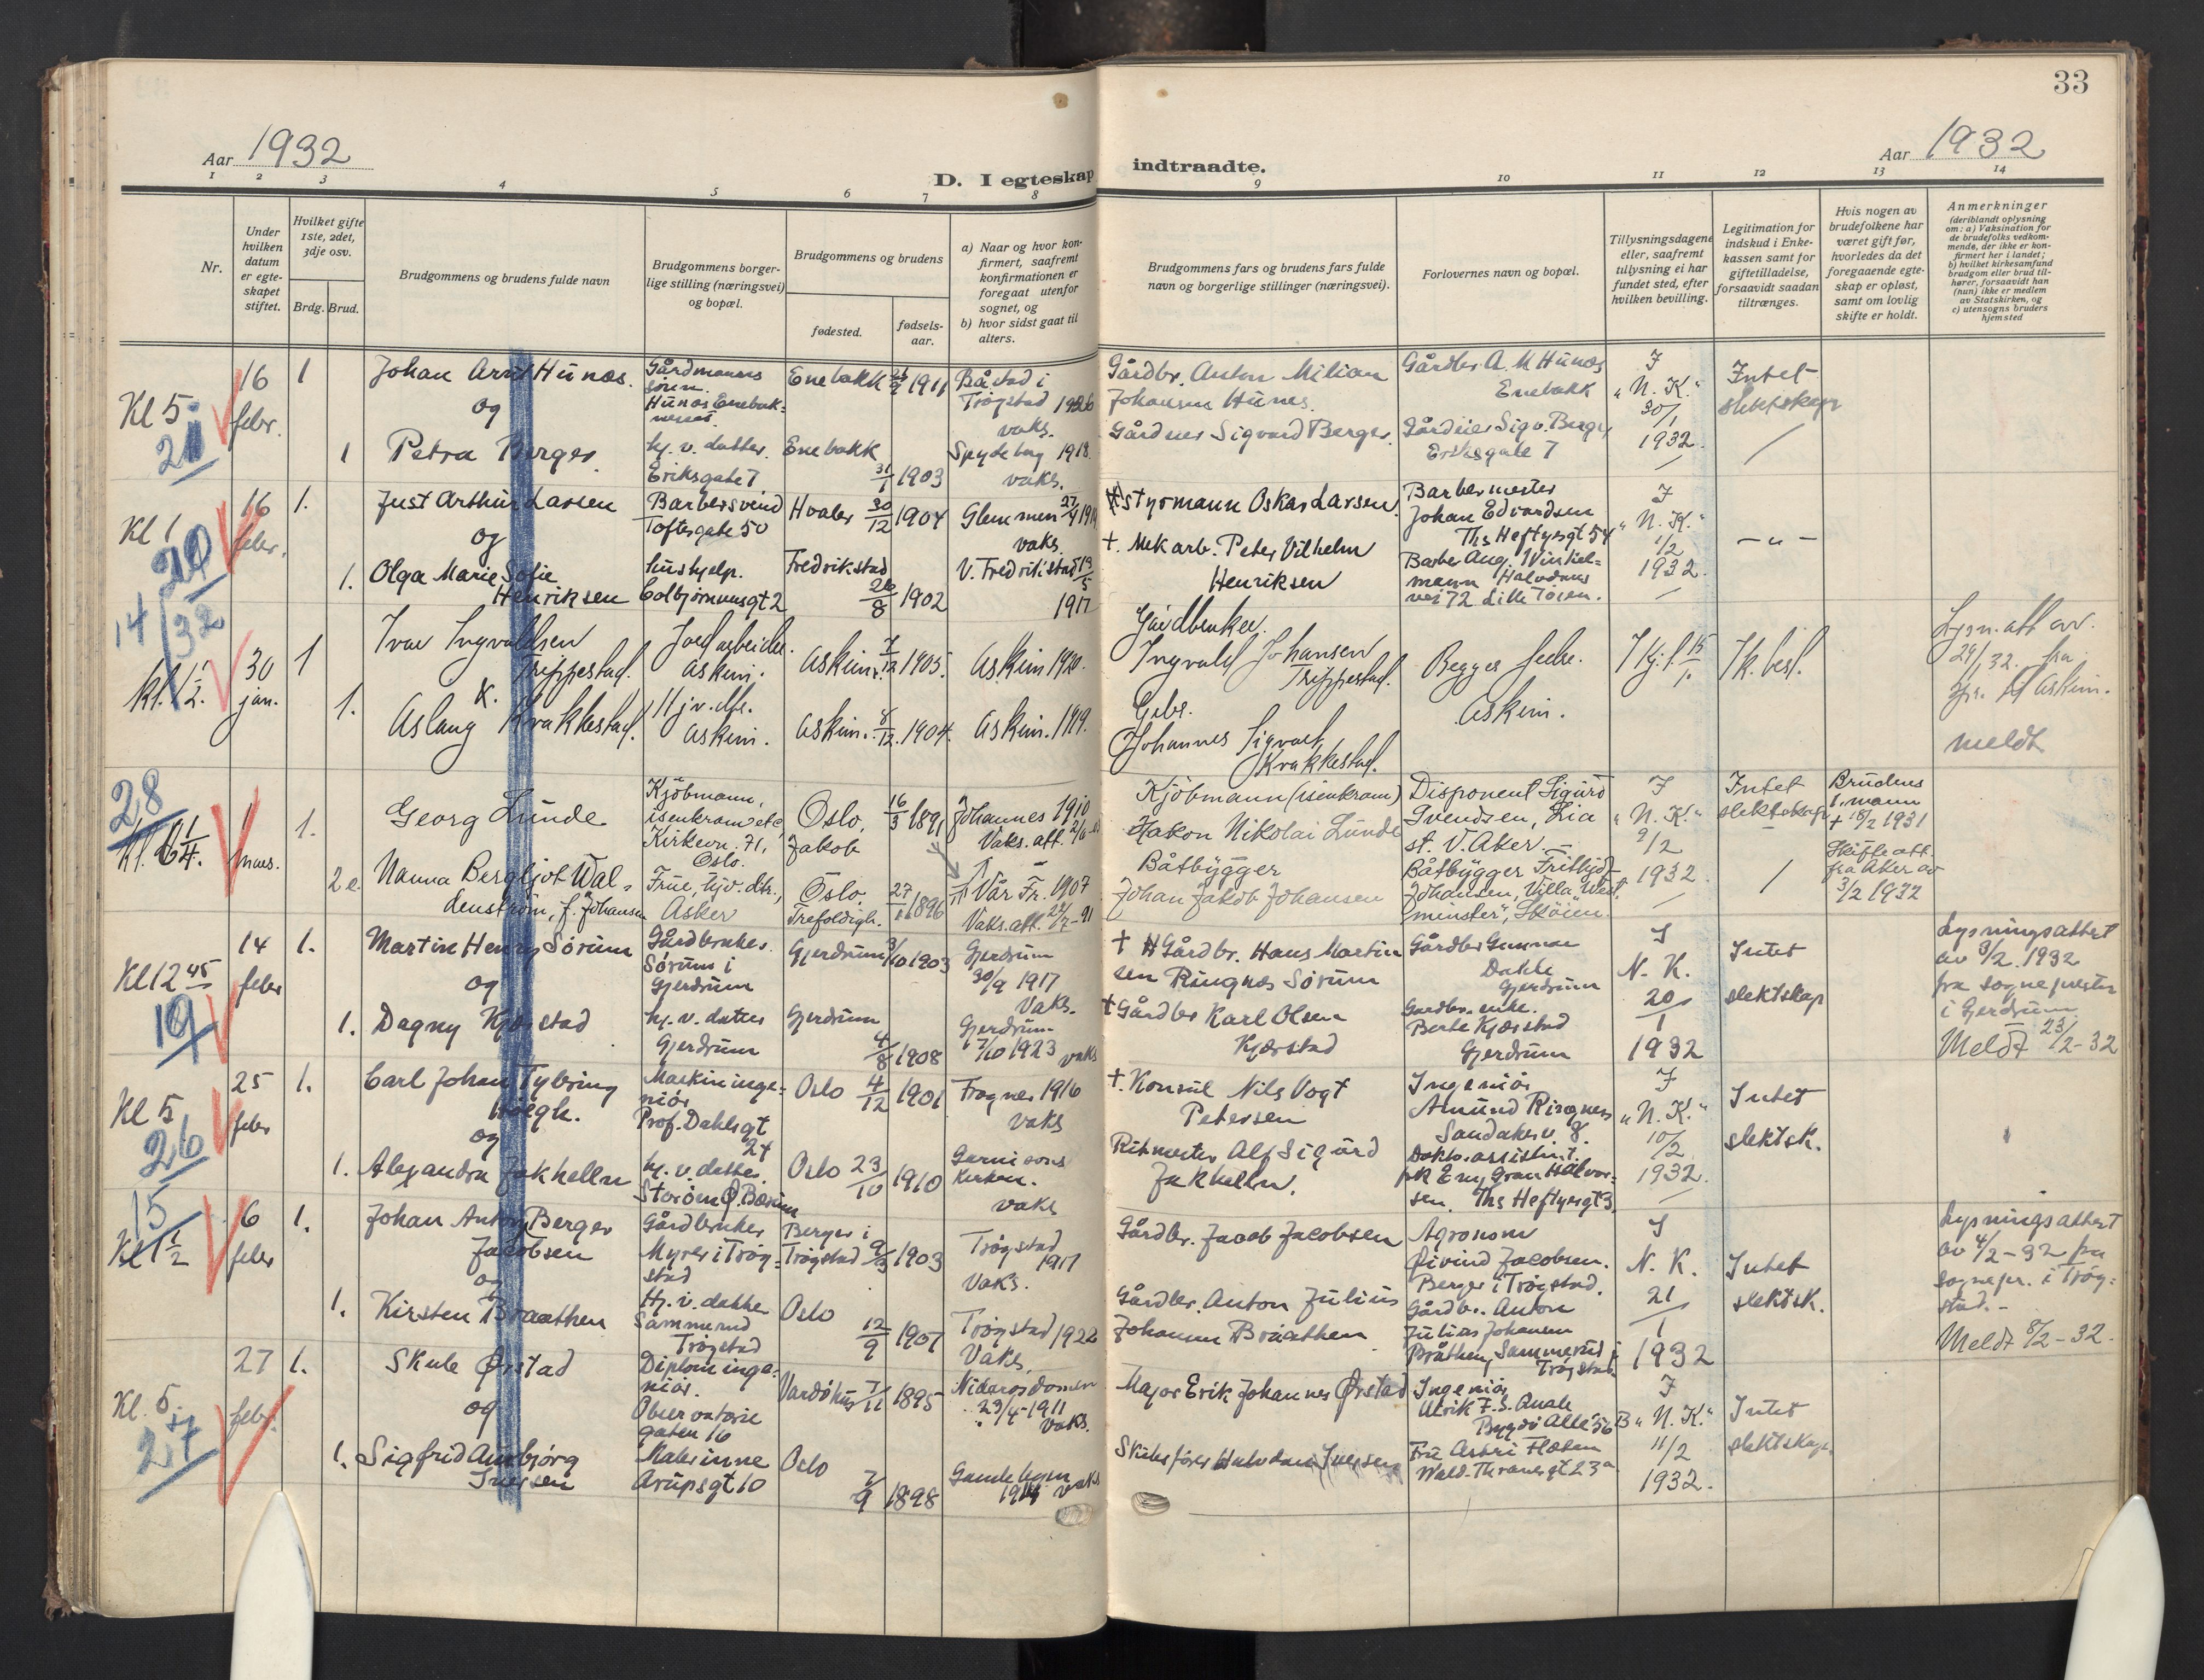 33
Aar 1932
D. I egteskap indtraadte.
Aar 1932
1 2 3 4 5 6 7 8 9 10 11 12 13 14
Nr.
Under hvilken datum er egteskapet stiftet.
Hvilket gifte 1ste, 2det, 3dje osv.
Brdg. Brud.
Brudgommens og brudens fulde navn
Brudgommens borgerlige stilling (næringsvei) og bopæl.
Brudgommens og brudens
fødested.
fødselsaar.
a) Naar og hvor konfirmert, saafremt konfirmationen er foregaat utenfor sognet, og
b) hvor sidst gaat til alters.
Brudgommens fars og brudens fars fulde navn og borgerlige stillinger (næringsvei).
Forlovernes navn og bopæl.
Tillysningsdagene eller, saafremt tillysning ei har fundet sted, efter hvilken bevilling.
Legitimation for indskud i Enkekassen samt for giftetilladelse, forsaavidt saadan tiltrænges.
Hvis nogen av brudefolkene har været gift før, hvorledes da det foregaaende egteskap er opløst, samt om lovlig skifte er holdt.
Anmerkninger
(deriblandt oplysning om: a) Vaksination for de brudefolks vedkommende, der ikke er konfirmert her i landet; b) hvilket kirkesamfund brudgom eller brud tilhører, forsaavidt han (hun) ikke er medlem av Statskirken, og c) utensogns bruders hjemsted
Kl 5
21
16 febr.
1
Johan Hunæs.
og
1 Petra Berger
Gårdmanns sønn.
Hunæs Enebak
hj. v. datter.
Eriksgate 7
Enebakk 1911
Enebakk 31/1 1903
Båstad i Trøgstad 1926
vaks.
Spydeberg 1918.
vaks.
Gårdbr. Anton Milian
Johansen Hunes.
Gårdeier Sigvard Berger
Gårdbr. A. M Hunæs
Enebakk
Gårdeier Sigv. Berger
Eriksgate 7
I
"N. K."
30/1
1932.
Intet
slektskap
Kl 1
20
14/32
16 febr.
1. Just Arthur Larsen
og
1. Olga Marie Sofie
Henriksen
Barbersvend
Toftesgate 50
hushjelp.
Colbjørnsensgt 2
Hvaler 30/12 1904
Fredrikstad
28/8 1902
Glemmen
vaks.
V. Fredrikstad
1917
styrmann Oskar Larsen
+. Mek arb. Peter Vilhelm
Henriksen
Barbermester
Johan Edvardsen
Ths Heftyesgt 54
Barber Aug. Winkelmann
Halvdans
vei 72 Lille Tøien.
I
"N. K."
1/2
1932.
- " -
kl. 1 1/2.
30 jan.
1 Ivar Ingvaldsen
Trippestad.
1. Aslaug K. Krakkestad.
Jordarbeider.
Askim.
Hjv. dtr.
Askim.
Askim. 7/12 1905.
Askim. 8/12. 1904.
Askim 1920.
Askim. 1919.
Gårdbruker.
Ingvald Johansen
Trippestad.
Gbr.
Johannes Sigvart
Krakkestad.
Begges fedre.
Askim.
Lysn. att av.
fra
Askim.
meldt
28
kl. 6 1/4.
1 mars.
1. Georg Lunde
2 e. Nanna Bergljot Waldenstrøm, f. Johansen
Kjøbmann,
isenkram etc
Kirkevn. 71,
Oslo.
Frue, hjv. dtr.,
Asker
Oslo. 16/3 1891
Jakob
Oslo. 27/1 1896
Trefoldigh.
Johannes 1910
Vaks. att.
Vår Fr. 1907
Vaks. att.
Kjøbmann (isenkram)
Hakon Nikolai Lunde
Båtbygger
Johan Jakob Johansen
Disponent Sigurd
Svendsen, Lia
st. V. Aker.
Båtbygger Frithjof
Johansen, Villa "Westminster", Skøien.
I
"N. K."
9/2
1932.
Intet
slektskap
Brudens
1. mann
+ 18/2 1931
Skifteatt.
fra Aker av
3/2 1932
Kl 12 45
19
14 febr
1. Martin Henry Sørum
og
1. Dagny Kjærstad
Gårdbruker.
Sørum i
Gjerdrum
hj. v. datter
Gjerdrum
Gjerdrum 3/10 1903
Gjerdrum
4/8 1908
Gjerdrum
30/9 1917
Vaks.
Gjerdrum
7/10 1923 vaks
+ Gårdbr. Hans Martinsen Ringnes Sørum
+ Gårdbr Karl Olsen
Kjærstad
Gårdbr Gunnar
Dahle
Gjerdrum
Gardbr. enke.
Berte Kjærstad
Gjerdrum
I
N. K.
20/1
1932
Intet
slektskap
Lysningsattest
av 3/2. 1932
fra sognepresten
i Gjerdrum
Meldt 23/2-32
Kl 5
26
25 febr
1. Carl Johan Tybring
Høegh.
og
1. Alexandra Jakhelln
Maskiningeniør
Prof. Dahlsgt
24
hj. v. datter.
Storøen Ø. Bærum
Oslo 4/12 1901
Oslo 23/10 1910
Frogner 1916
vaks
Garnisonskirken.
vaks
+. Konsul Nils Vogt
Petersen
Ritmester Alf Sigurd
Jakhelln.
Ingeniør
Amund Ringnes
Sandakerv. 8.
Doktorassistent.
frk Eny Gran Halvorsen. Ths Heftyesgt 3.
I
"N. K."
10/2
1932.
Intet
slektsk.
15
Kl 1 1/2
6 febr
1. Johan Anton Berger
Jacobsen
og
1. Kirsten Braathen
Gårdbruker
Myrer i Trøgstad
Hj. v. datter
Sammerud
Trøgstad
Berger i
Trøgstad 9/3 1903
Oslo
12/9 1901
Trøgstad
1917
Vaks.
Trøgstad 1922
Vaks.
Gårdbr. Jacob Jacobsen
Gårdbr. Anton Julius
Johansen Braathen
Agronom
Øivind Jacobsen.
Berger i Trøgstad.
Gårdbr. Anton
Julius Johansen
Bråthen, Sammerud i
Trøgstad
I
N. K.
21/1
1932
Intet
slektsk.
Lysningsattest
av 4/2-32 fra
sognepr. i Trøgstad.-
Meldt 8/2-32.
Kl. 5.
27
27 febr.
1. Skule Ørstad
og
1. Sigfrid Aasbjørg
Iversen
Diplomingeniør.
Observatoriegaten 16
Malerinne
Arupsgt 10
Vardöhus 7/11 1895
Oslo
7/9 1898
Nidarosdomen
23/4-1911
vaks.
Gamlebyen
1914 vaks
Major Erik Johannes Ørstad
Skibsfører Halvdan Iversen
Ingeniør
Ulrik F. S. Quale
Bygdø Alle 56 B
Fru Astri Flåten
Wald. Thranesgt 23a
I
"N. K."
11/2
1932.
Intet
slektskap